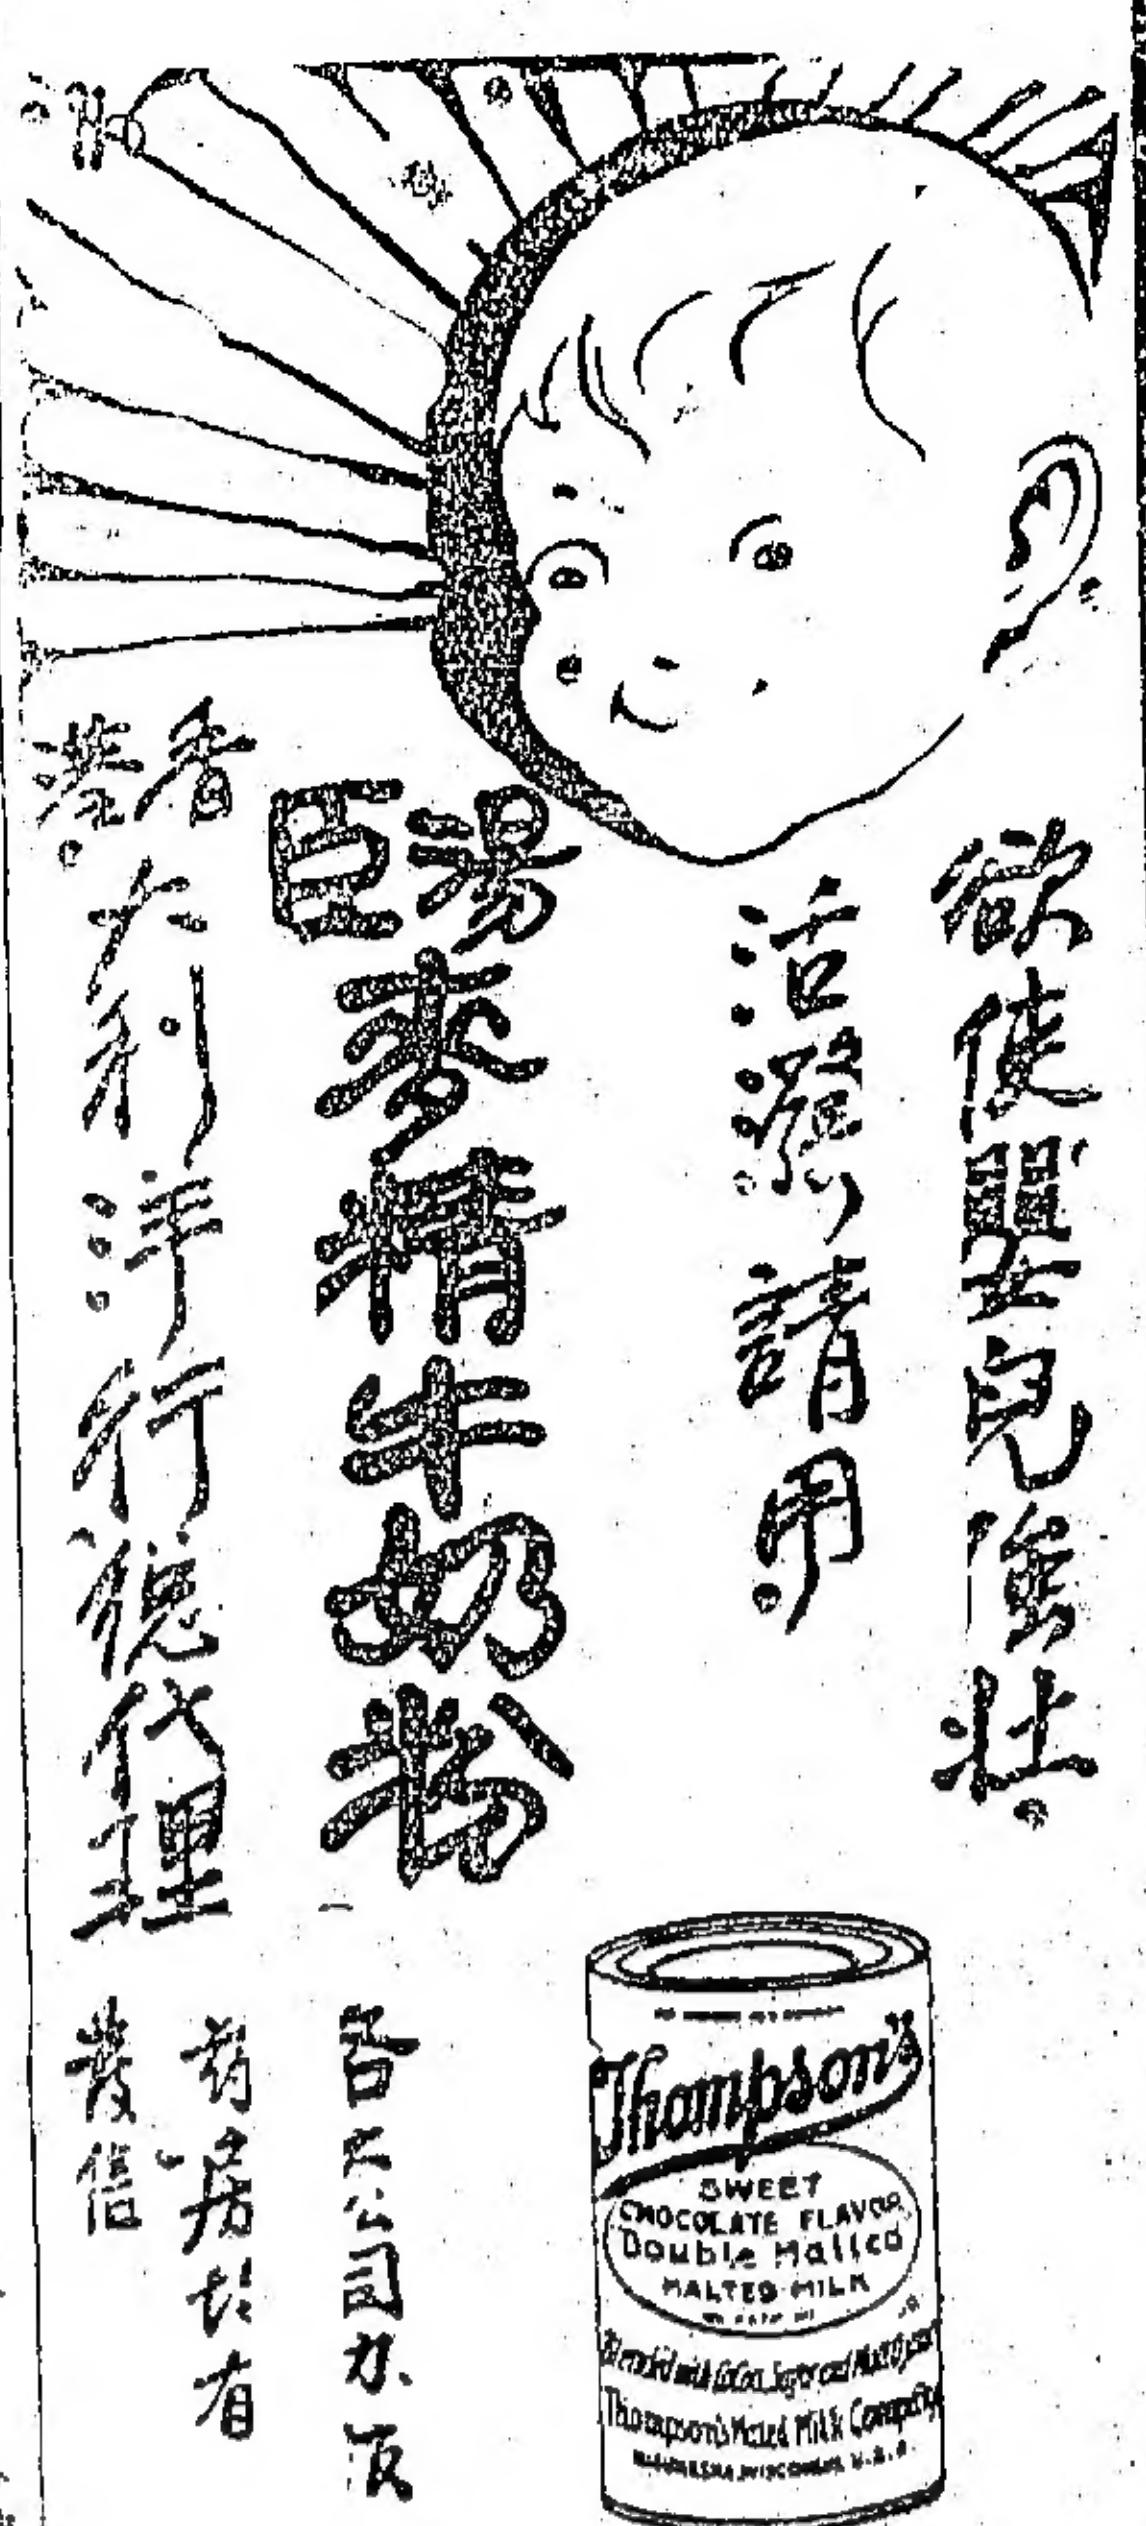 欲使嬰兒強壯
活潑請用
湯臣
麥精牛奶粉
香港
大利洋行總代理
各大公司办下
药房均有
發售
Thompson's
SWEET
CHOCOLATE FLAVOR
Double Malted
MALTED MILK
Blended with Cocoa, Sugar and
Thompson's Malted Milk Company
WAUKESHA, WISCONSIN, U.S.A.